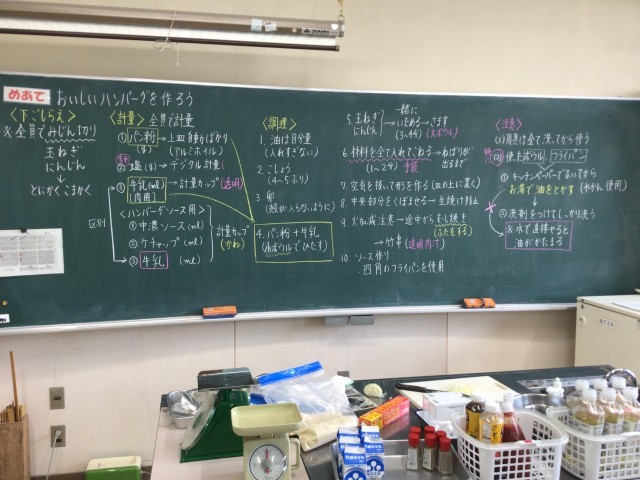 めあて おいしいハンバーグを作ろう
〈下ごしらえ〉
※全員でみじん切り
玉ねぎ
にんじん
↓
とにかくこまかく
〈計量〉全員で計量
① パン粉 → 上皿自動ばかり
(アルミホイル)
② 塩(g) → デジタル計量
③ 牛乳(ml) → 計量カップ(透明)
(肉用)
区別
〈ハンバーグソース用〉
① 中濃ソース(ml)
② ケチャップ(ml)
③ 牛乳 (ml)
計量カップ
(かね)
〈調理〉
1. 油は分量
(入れすぎない)
2. こしょう
(4~5ふり)
3. 卵
(殻が入らないように)
4. パン粉+牛乳
(小ボウルでひたす)
5. 玉ねぎ
にんじん
一緒に
いためる→さます
(3~4分) (大ボウル)
6. 材料を全て入れてこねる→ねばりが
出るまで
(1~2分) 手袋
7. 空気を抜いて形を作る (皿の上に置く)
8. 中央部分をくぼませる→生焼け防止
9. 火加減注意→途中からむし焼き
(ふたをする)
→竹串(透明)
10. ソース作り
四角のフライパンを使用
〈注意〉
用具は全て洗ってから使う
使ったボウル, フライパン
① キッチンペーパーでふいてから
お湯で油をとかす
② 洗剤をつけてしっかり洗う
※水で直接やると
油がかたまる